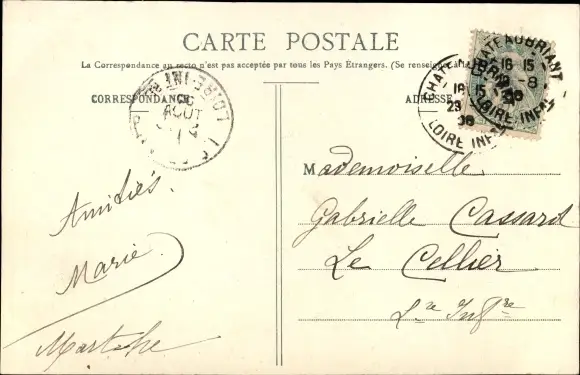 CARTE POSTALE
La Correspondance au recto n'est pas acceptée par tous les Pays Étrangers. (Se renseigner à la
CORRESPONDANCE
ADRESSE
CHATEAUBRIANT
16 15
8
LOIRE INFRE
CHATEAUBRIANT
16 15
23
LOIRE INF
LOIRE-INF
AOUT
Amitiés.
Marie
Mademoiselle
Gabrielle Cassard
Le Cellier
Lre Infre